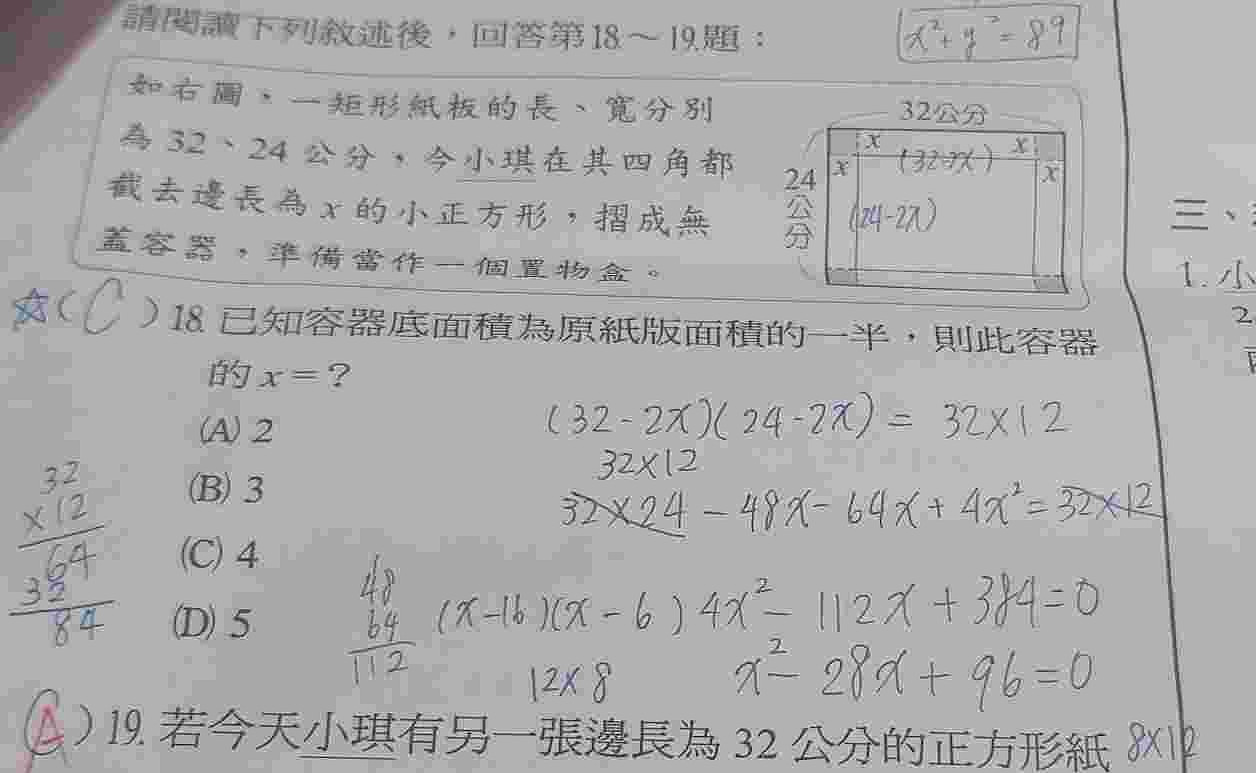 請閱讀下列敘述後，回答第18～19題：
x²+y²=89
如右圖，一矩形紙板的長、寬分別
為 32、24 公分，今小琪在其四角都
截去邊長為 x 的小正方形，摺成無
蓋容器，準備當作一個置物盒。
32公分
x x
x (32-2x) x
24公分
(24-2x)
三、
1. 小
2
☆( C )18. 已知容器底面積為原紙版面積的一半，則此容器
的 x = ?
(A) 2
(B) 3
(C) 4
(D) 5
(32-2x)(24-2x) = 32×12
32×12
32×24 - 48x - 64x + 4x² = 32×12
32
×12
64
32
84
48
64
112
(x-16)(x-6) 4x² - 112x + 384 = 0
12×8 x² - 28x + 96 = 0
(A) 19. 若今天小琪有另一張邊長為 32 公分的正方形紙 8×12